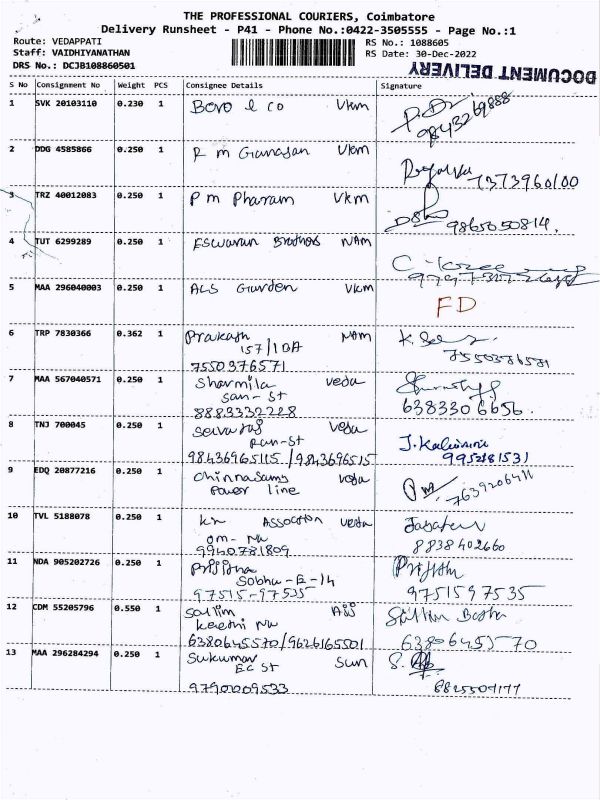 THE PROFESSIONAL COURIERS, Coimbatore
Delivery Runsheet - P41 - Phone No.:0422-3505555 - Page No.:1
Route: VEDAPPATI RS No.: 1088605
Staff: VAIDHIYANATHAN RS Date: 30-Dec-2022
DRS No.: DCJB108860501
DOCUMENT DELIVERY
S No Consignment No Weight PCS Consignee Details Signature
1 SVK 20103110 0.230 1 Bovo & co Vkm
9843269888
2 DDG 4585866 0.250 1 R m Ganasan Vkm
7373960100
3 TRZ 40012083 0.250 1 P m Pharam Vkm
9865050814.
4 TUT 6299289 0.250 1 Eswaran Brothers NAm
5 MAA 296040003 0.250 1 ALS Garden Vkm
FD
6 TRP 7830366 0.362 1 Prakash NAm
157/10A
7550376571 7550376571
7 MAA 567040571 0.250 1 Sharmila veda
san-st
8883332228 6383306656.
8 TNJ 700045 0.250 1 Selvaraj Veda
pan-st
98436965115 /9843696515 995281531
9 EDQ 20877216 0.250 1 Chinnasamy veda
Power line 7639206411
10 TVL 5188078 0.250 1 kn Assocation veda
om- Na
9940781809 8838402660
11 NDA 905202726 0.250 1 Prijitha Prijith
Sobha-E-14
97515-97535 9751597535
12 CDM 55205796 0.550 1 Salim Ajj
keethi Na
6380645570/9626165501 6380645570
13 MAA 296284294 0.250 1 Sukumar Sun
EC st
9790009533 8825504177